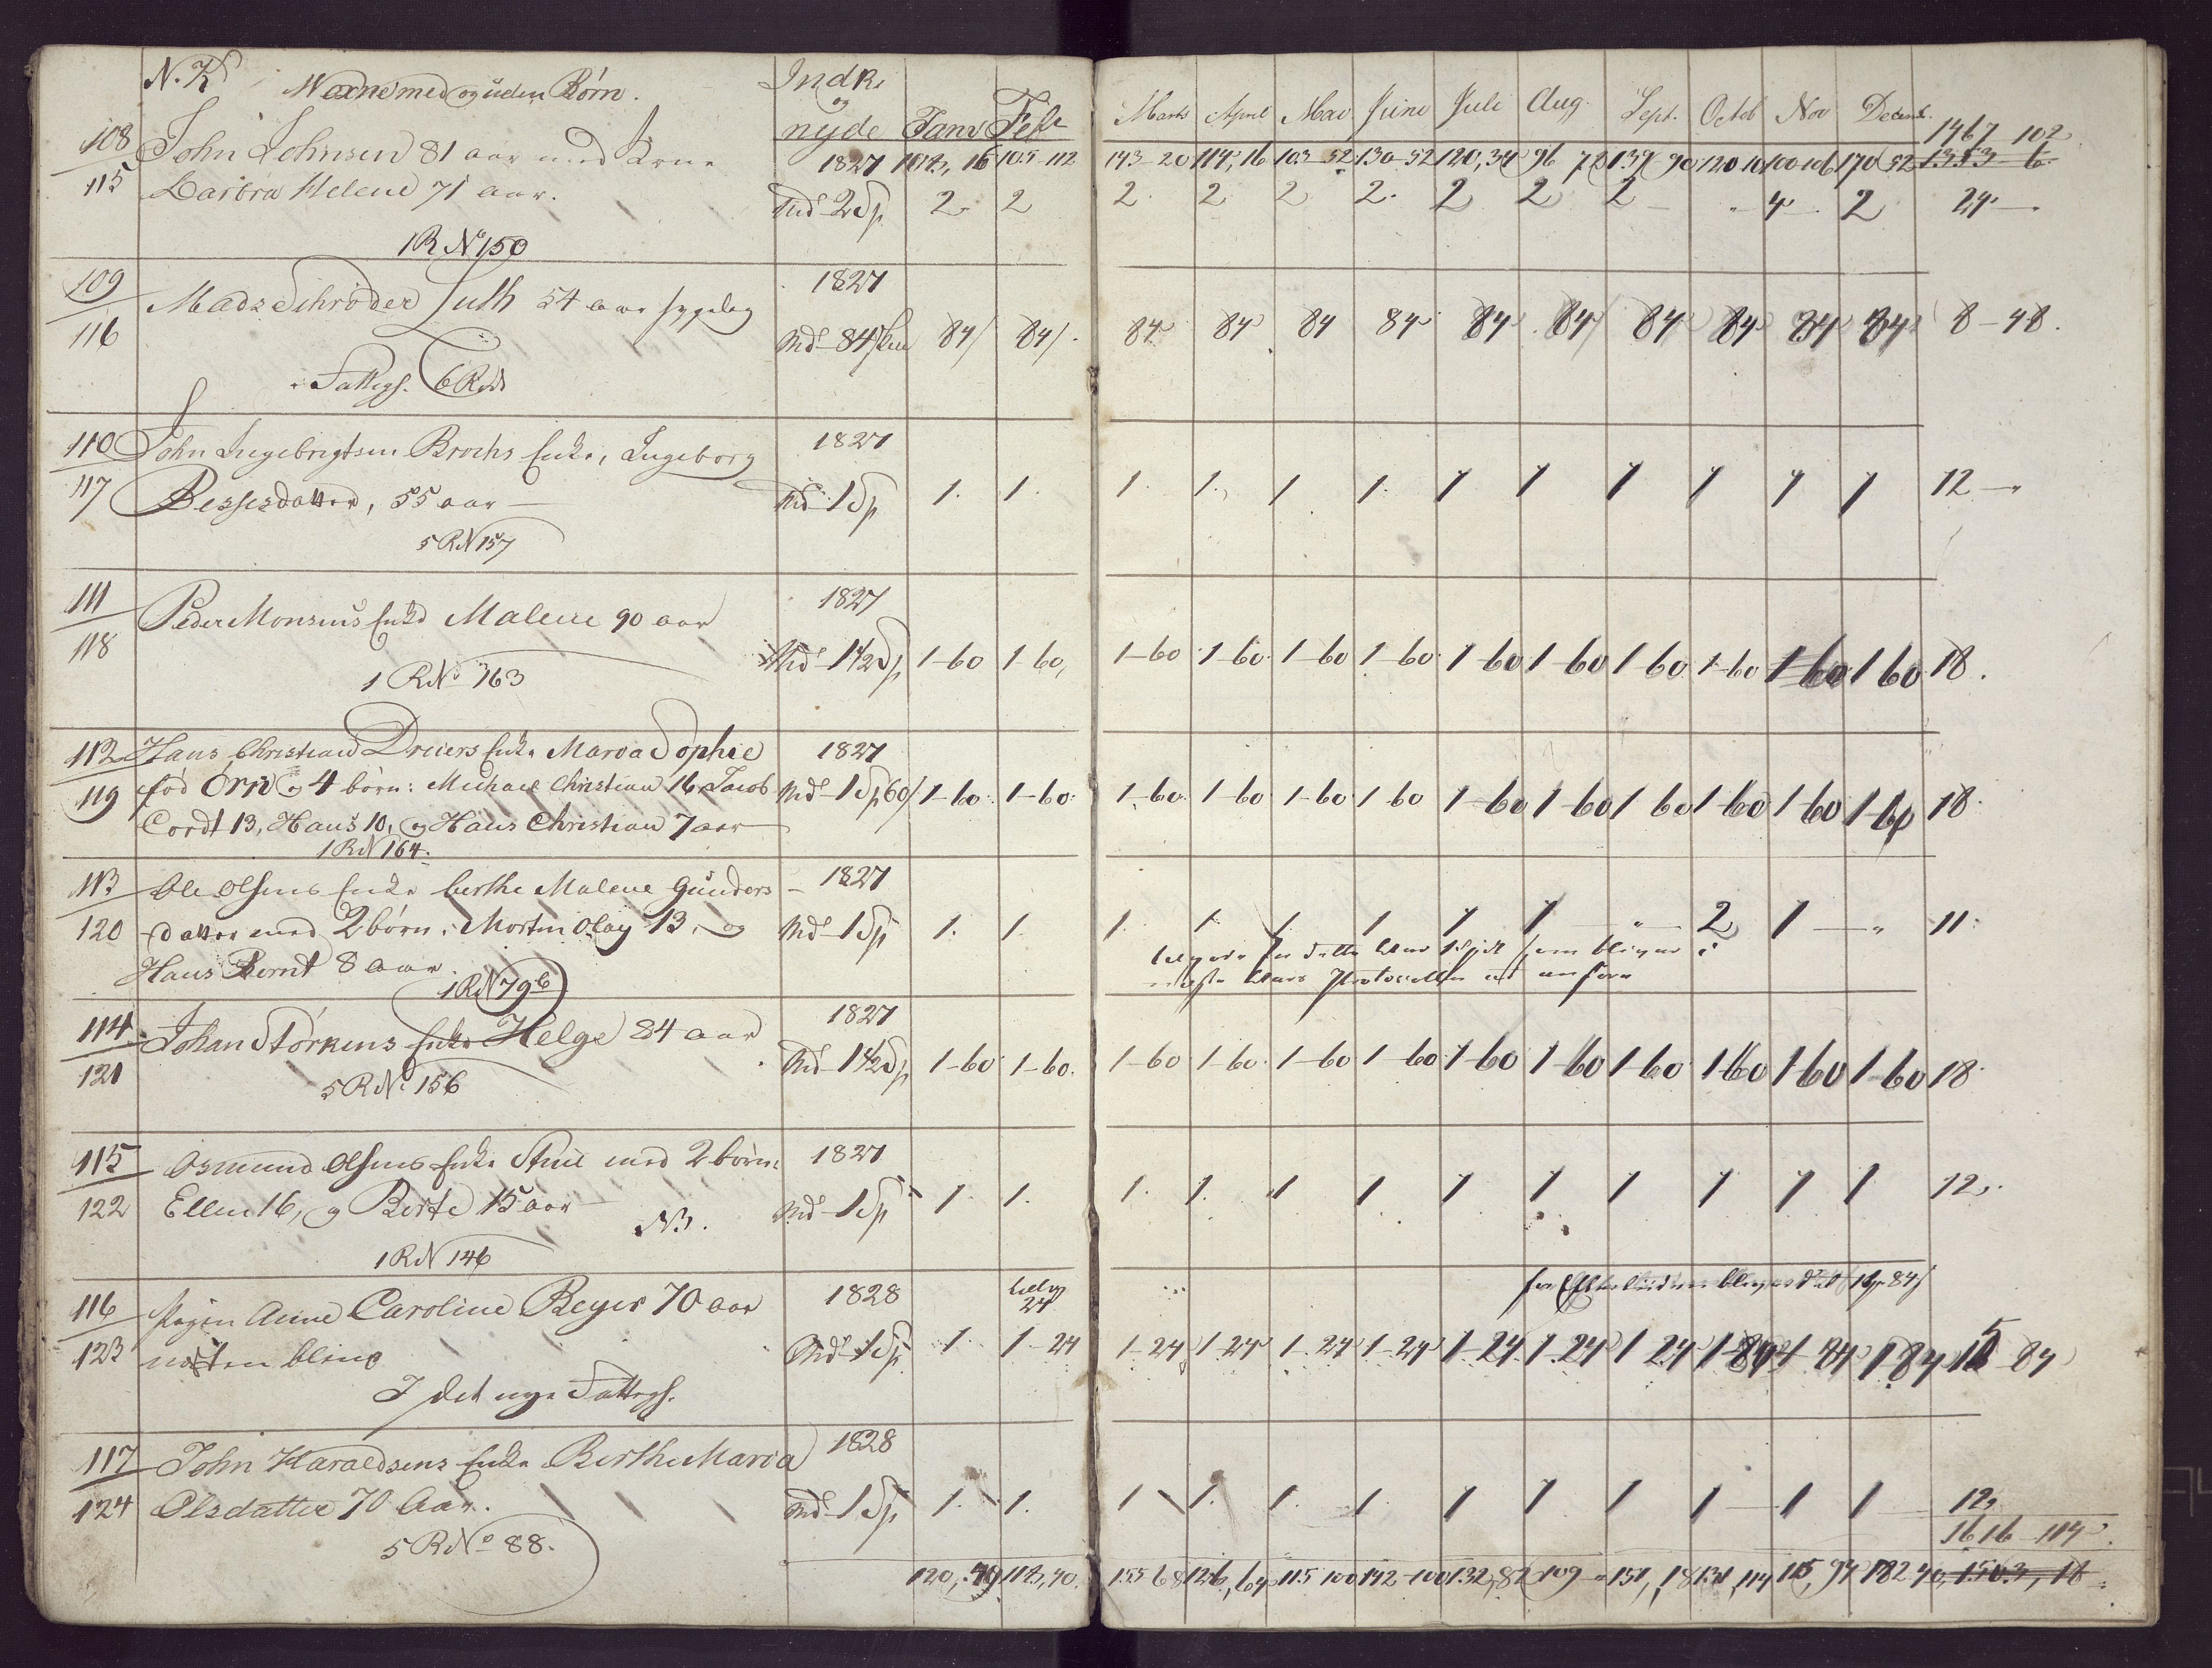 N. K. Voxne med og uden Børn. Indk. og nyde Janv Febr Marts April Mai Juni Juli Aug. Sept. Octob Nov Decemb.
1467 102
108 John Johnsen 81 aar med Kone 1827 105-112 143-20 114,16 103-52 130-52 120,34 96 72 139 90 120 10 100 106 170 52 1353-6
115 Barbra Helene 71 aar. Md. 2 Sp 2 2 2 2 2 2 2 2 2 - 4 2 24 -
1 R No 150
109 Mads Schrøder Juth 54 aar sygelig 1827
116 Md. 84 84 84 84 84 84 84 84 84 84 84 84 84 8-48.
Fattigh. 6 R
110 John Ingebrigtsen Brochs Enke, Ingeborg 1827
117 Bessesdatter, 55 aar Md. 1 Sp 1. 1. 1. 1. 1 1. 1 1 1 1 1 1 12 -
5 R N 157
111 Peder Monsens Enke Malene 90 aar 1827
118 Md. 1 1/2 Sp 1-60 1 60 1-60 1-60 1-60 1-60 1-60 1-60 1-60 1-60 1-60 1 60 18.
1 R No 163
112 Hans Christian Dreiers Enke Maria Sophie 1827
119 fød Örn og 4 børn: Michael Christian 16, Jacob Md. 1 Sp 60 1-60 1-60 1-60 1-60 1-60 1-60 1-60 1-60 1 60 1-60 1-60 1-60 18
Cordt 13, Hans 10, og Hans Christian 7 aar
1 R N 164.
113 Ole Olsens Enke berthe Malene Gunders 1827
120 datter med 2 børn: Morten Olay 13, og Md. 1 Sp 1. 1 1. 1. 1. 1 1 1 - 2 1 - 11
Hans Bernt 8 aar. for dette Aar 1 Spd som bliver i
1 R N 79 b næste Aars Protocoller at anføre
114 Johan Størkens Enke Helge 84 aar 1827
121 Md. 1 1/2 Sp 1-60 1-60. 1-60 1-60 1-60 1-60 1-60 1-60 1-60 1-60 1-60 1-60 18
5 R No 156
115 Osmund Olsens Enke med 2 børn: 1827
122 Ellen 16, og Berte 15 aar Md. 1 Sp 1. 1. 1. 1. 1 1 1 1 1 1 1 1 12,.
NB.
1 R N 146
116 Pigen Anne Caroline Beyer 70 aar 1828 24
123 næsten blind Md. 1 Sp 1. 1-24 1-24 1 24 1-24 1-24 1-24 1.24 1 24 1-84 1-84 1 84 15-84
I det nye Fattigh.
117 John Haraldsens Enke Berthe Maria 1828
124 Olsdatter 70 Aar. Md. 1 Sp 1. 1. 1 1. 1. 1. 1 1 1 1 1 1 12,
5 R No 88. 1616-114
118,40. 155 68 126,64 115 100 142-100 132,82 109 - 151,18 131,114 115,94 182 40 1503,18